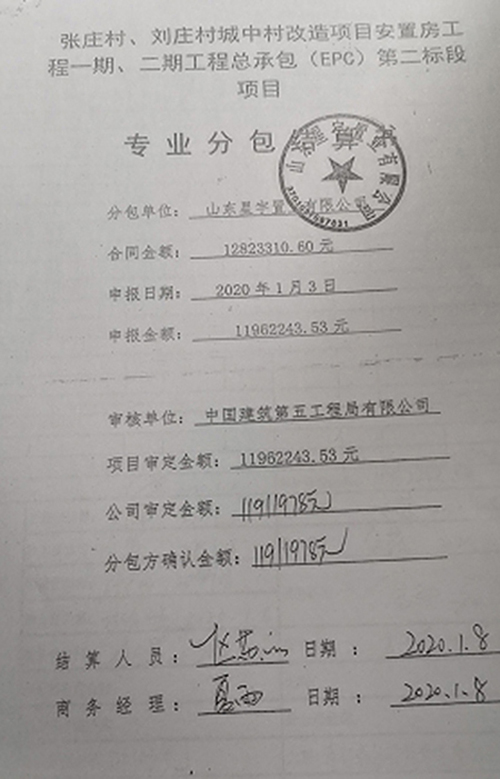 张庄村、刘庄村城中村改造项目安置房工
程一期、二期工程总承包（EPC）第二标段
项目
专业分包结算书
分包单位：山东星宇置业有限公司
合同金额：12823310.60元
申报日期：2020年1月3日
申报金额：11962243.53元
审核单位：中国建筑第五工程局有限公司
项目审定金额：11962243.53元
公司审定金额：11911978元
分包方确认金额：11911978元
结算人员： 日期：2020.1.8
商务经理： 日期：2020.1.8